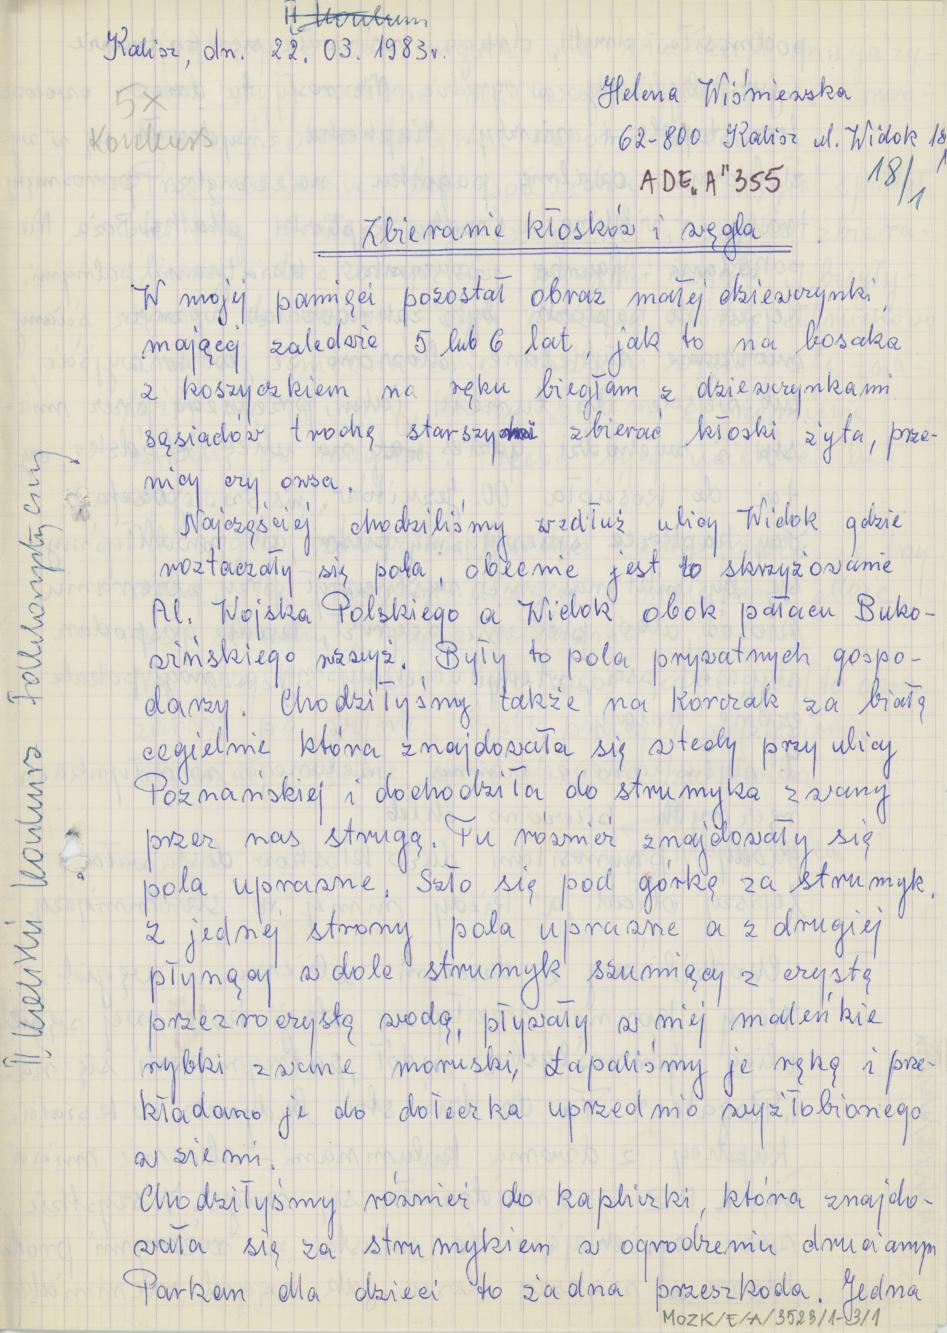 II Konkurs
Kalisz, dn. 22. 03. 1983r.
5x
Konkurs
Helena Wiśniewska
62-800 Kalisz ul. Widok 18
18/1
ADE „A" 355
Zbieranie kłosków i węgla
W mojej pamięci pozostał obraz małej dziewczynki,
mającej zaledwie 5 lub 6 lat, jak to na bosaka
z koszyczkiem na ręku biegłam z dziewczynkami
sąsiadów trochę starszymi zbierać kłoski żyta, prze-
nicy czy owsa.
Najczęściej chodziliśmy wzdłuż ulicy Widok gdzie
roztaczały się pola, obecnie jest to skrzyżowanie
Al. Wojska Polskiego a Widok obok pałacu Buko-
wińskiego wzwyż. Były to pola prywatnych gospo-
darzy. Chodziłyśmy także na Korczak za białą
cegielnię która znajdowała się wtedy przy ulicy
Poznańskiej i dochodziła do strumyka zwany
przez nas strugą. Tu również znajdowały się
pola uprawne. Szło się pod górkę za strumyk.
Z jednej strony pola uprawne a z drugiej
płynący w dole strumyk szumiący z czystą
przezroczystą wodą, pływały w niej maleńkie
rybki zwane moruski, Łapaliśmy je ręką i prze-
kładano je do dołeczka uprzednio wyżłobionego
w ziemi.
Chodziłyśmy również do kapliczki, która znajdo-
wała się za strumykiem w ogrodzeniu drucianym
Parkan dla dzieci to żadna przeszkoda. Jedna
MOZK/E/A/3523/1-3/1
II Wielki Konkurs Folklorystyczny